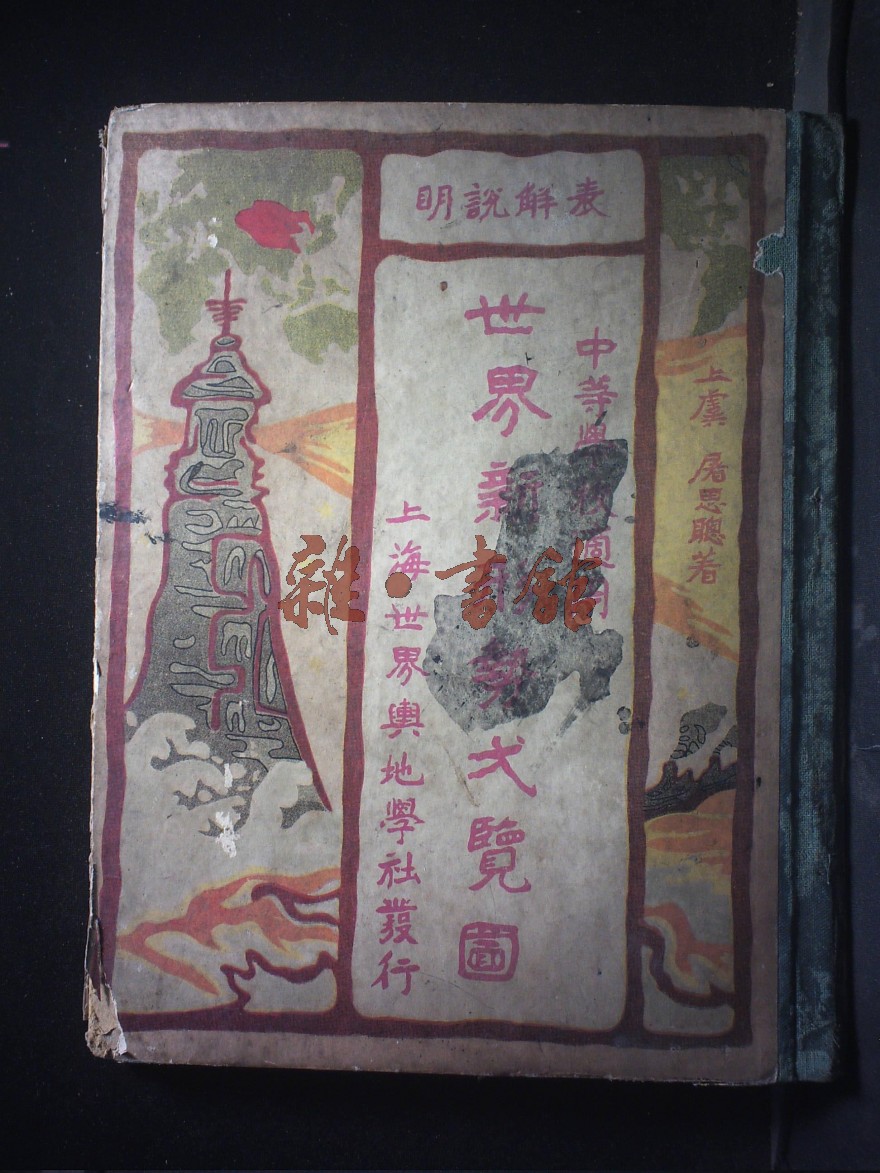 表解說明
上虞 屠思聰著
中等學校適用
世界新形勢弌覽圖
上海世界輿地學社發行
雜·書館